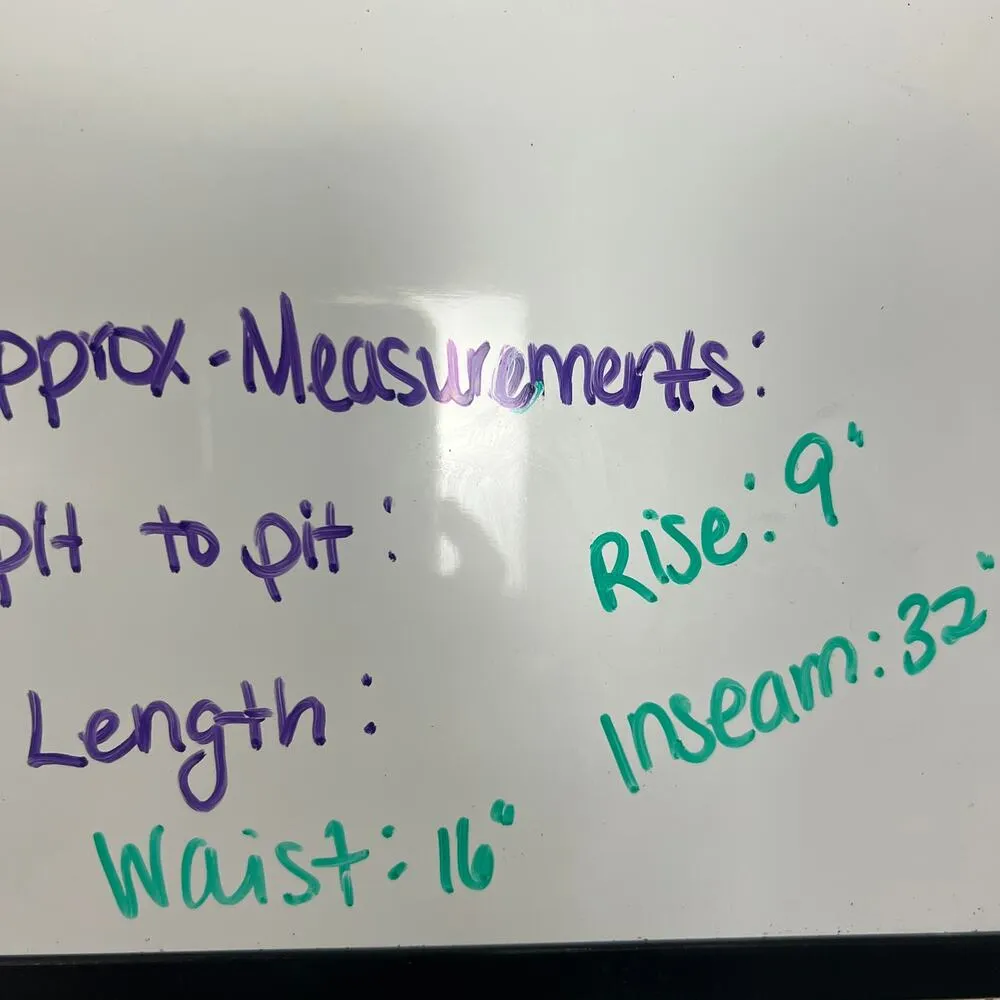 pprox. Measurements:
pit to pit:
Length:
Waist: 16"
Rise: 9"
Inseam: 32"